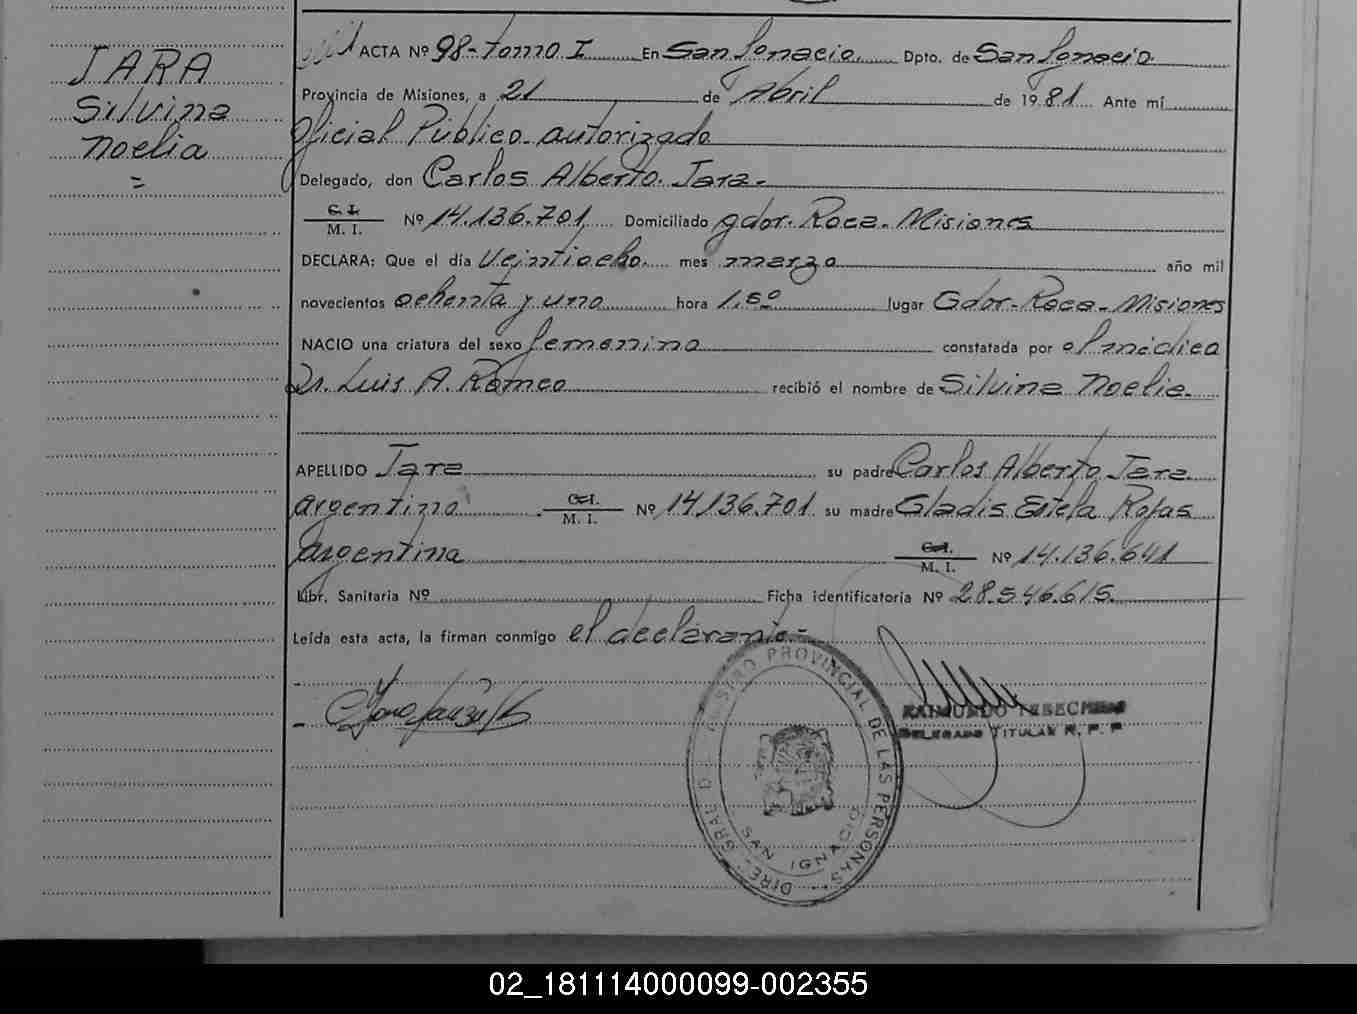 JARA
Silvina
Noelia
=
ACTA Nº 98-Tomo I En San Ignacio. Dpto. de San Ignacio.
Provincia de Misiones, a 21 de Abril de 1981 Ante mí
Oficial Público autorizado
Delegado, don Carlos Alberto Jara.
C. I.
M. I. Nº 14.136.701 Domiciliado gdor. Roca. Misiones
DECLARA: Que el día Veintiocho mes marzo año mil
novecientos ochenta y uno hora 1,50 lugar Gdor. Roca. Misiones
NACIO una criatura del sexo femenino constatada por el médico
Dr. Luis A. Romeo recibió el nombre de Silvina Noelia.
APELLIDO Jara su padre Carlos Alberto Jara
argentino C.I. M. I. Nº 14.136.701 su madre Gladis Estela Rojas
argentina C.I. M. I. Nº 14.136.641
Libr. Sanitaria Nº Ficha identificatoria Nº 28.546.615.
Leída esta acta, la firman conmigo el declarante.-
RAIMUNDO
DELEGADO TITULAR R. P. P
DIREC. GRAL. D REGISTRO PROVINCIAL DE LAS PERSONAS
SAN IGNACIO
02_181114000099-002355